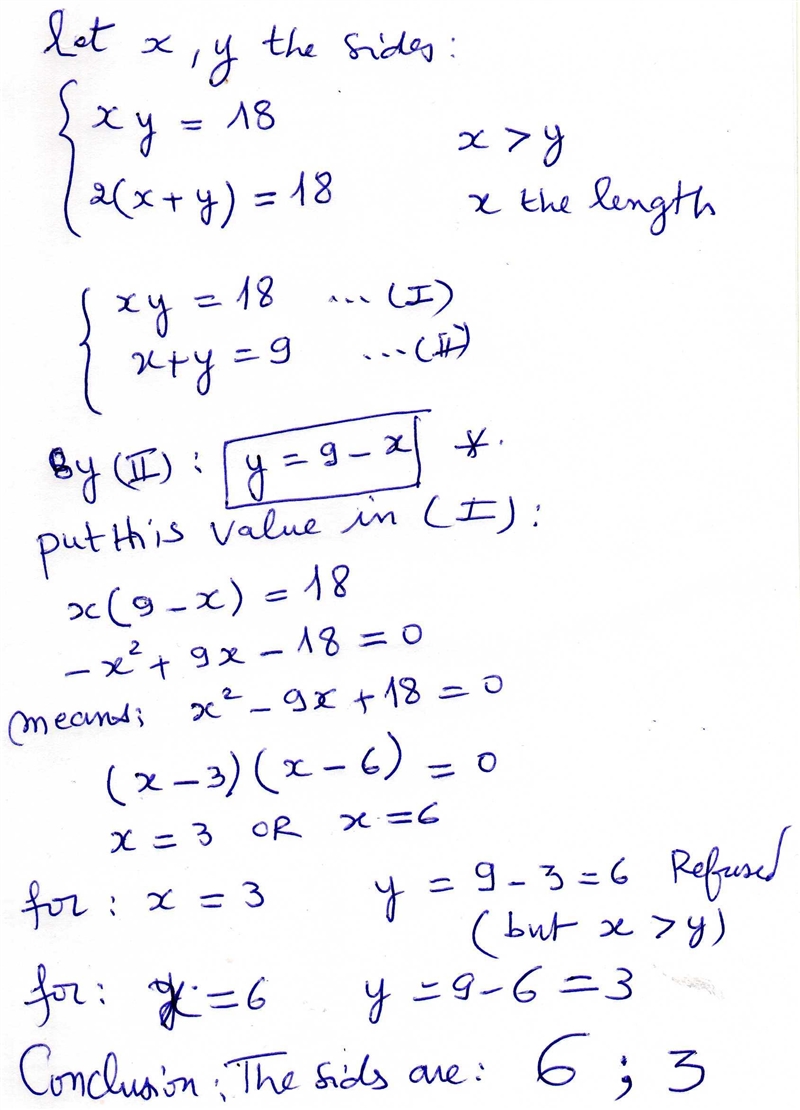 let x, y the sides:
xy = 18
x > y
2(x + y) = 18
x the length
xy = 18 ... (I)
x+y = 9 ... (II)
By (II) : y = 9 - x *.
put this value in (I) :
x(9 - x) = 18
-x² + 9x - 18 = 0
means: x² - 9x + 18 = 0
(x - 3)(x - 6) = 0
x = 3 OR x = 6
for : x = 3 y = 9 - 3 = 6 Refused
(but x > y)
for : x = 6 y = 9 - 6 = 3
Conclusion : The sids are : 6 ; 3